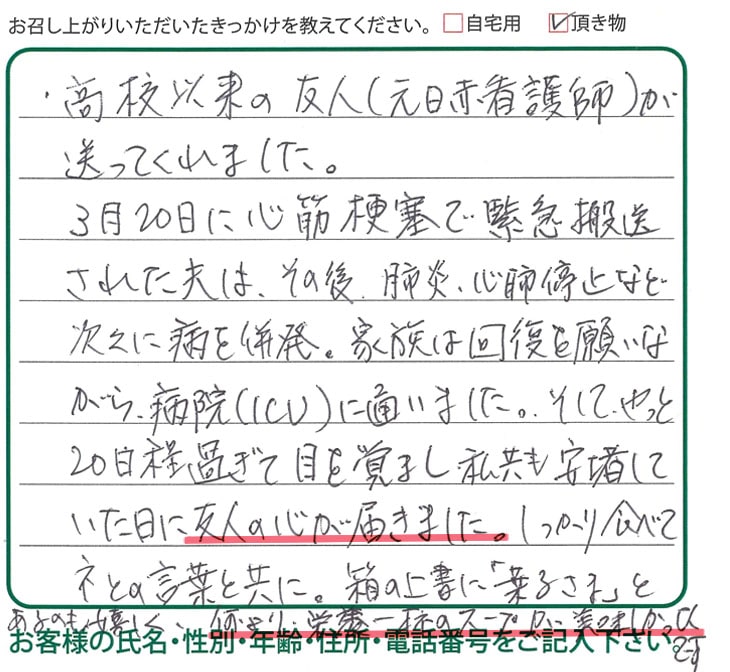 お召し上がりいただいたきっかけを教えてください。 自宅用 頂き物
・高校以来の友人(元日赤看護師)が
送ってくれました。
3月20日に心筋梗塞で緊急搬送
された夫は、その後、肺炎、心肺停止など
次々に病を併発。家族は回復を願いな
がら、病院(ICU)に通いました。そして、やっと
20日程過ぎて目を覚まし私共も安堵して
いた日に友人の心が届きました。しっかり食べて
ネとの言葉と共に。箱の上書に「葉子さま」と
あるのも嬉しく、何より、栄養一杯のスープが美味しかった
です
お客様の氏名・性別・年齢・住所・電話番号をご記入下さい。